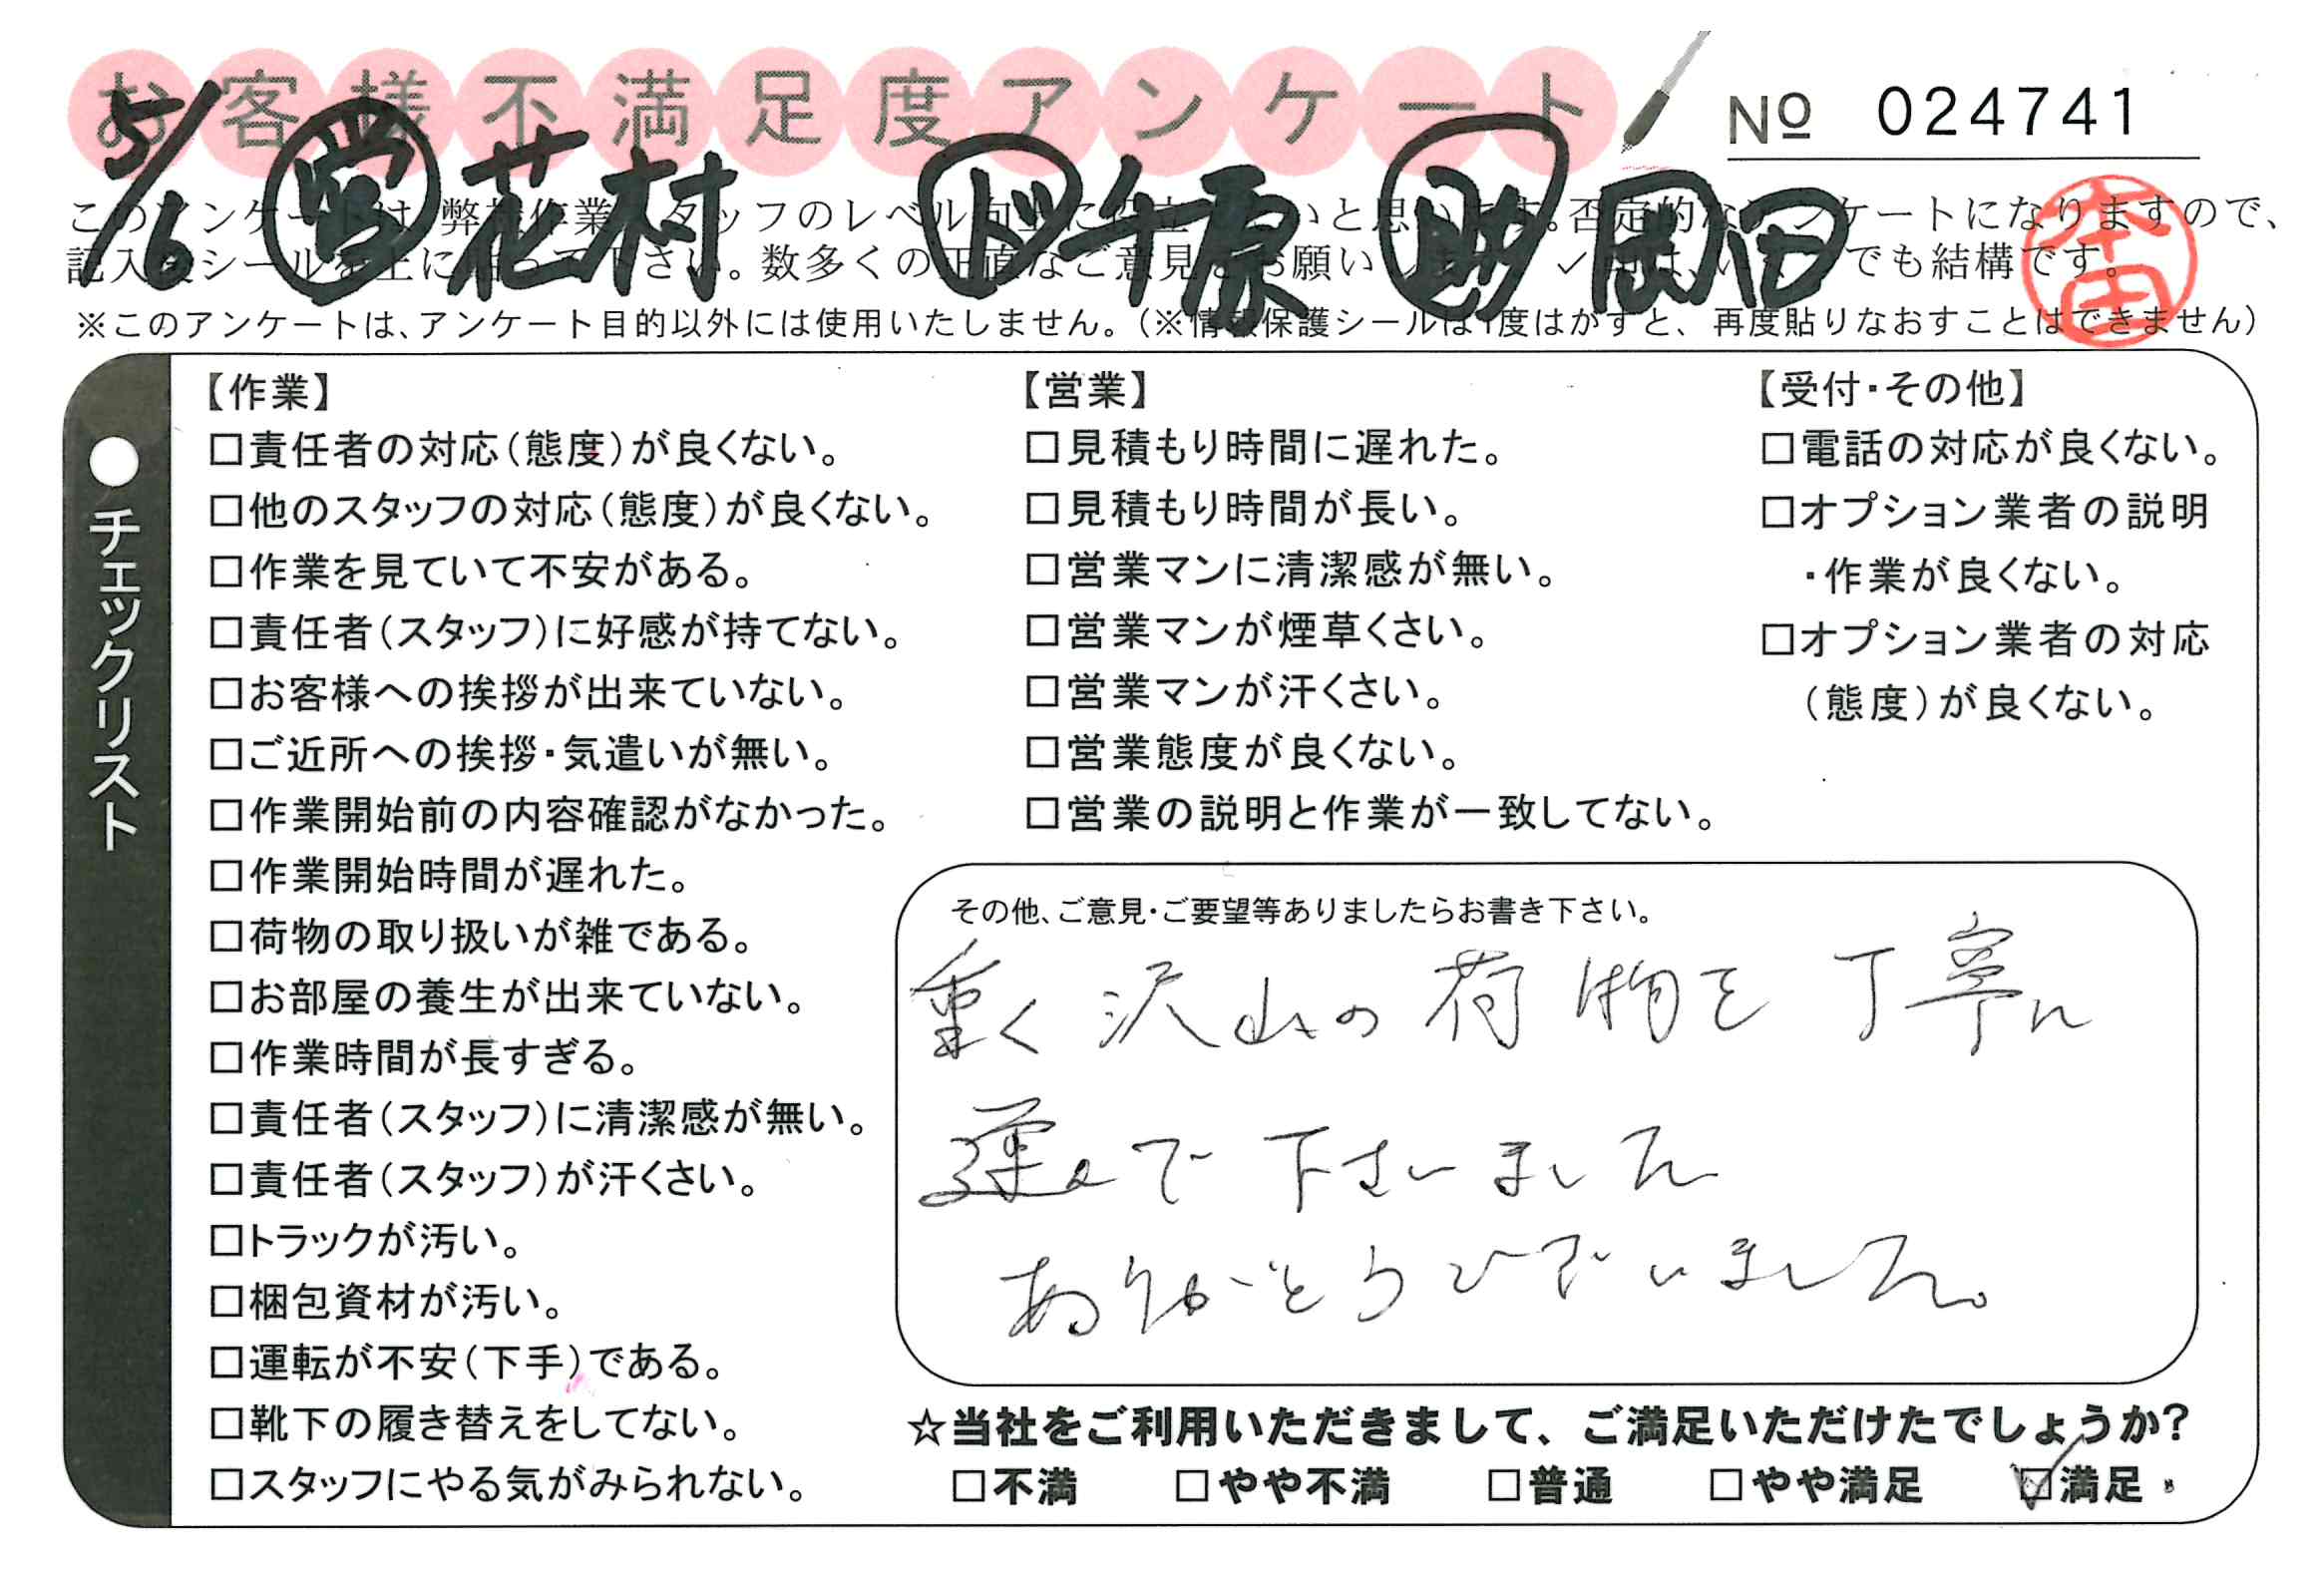 お客様不満足度アンケート
No 024741
5/6 営 花村 ド 千原 助 岡田
本田
このアンケートは、弊社作業スタッフのレベル向上に役立てたいと思います。否定的なアンケートになりますので、
記入後シールを上に貼って下さい。数多くの正直なご意見をお願いします。✓印は、いくつでも結構です。
※このアンケートは、アンケート目的以外には使用いたしません。（※情報保護シールは1度はがすと、再度貼りなおすことはできません）
●チェックリスト
【作業】
□責任者の対応（態度）が良くない。
□他のスタッフの対応（態度）が良くない。
□作業を見ていて不安がある。
□責任者（スタッフ）に好感が持てない。
□お客様への挨拶が出来ていない。
□ご近所への挨拶・気遣いが無い。
□作業開始前の内容確認がなかった。
□作業開始時間が遅れた。
□荷物の取り扱いが雑である。
□お部屋の養生が出来ていない。
□作業時間が長すぎる。
□責任者（スタッフ）に清潔感が無い。
□責任者（スタッフ）が汗くさい。
□トラックが汚い。
□梱包資材が汚い。
□運転が不安（下手）である。
□靴下の履き替えをしてない。
□スタッフにやる気がみられない。
【営業】
□見積もり時間に遅れた。
□見積もり時間が長い。
□営業マンに清潔感が無い。
□営業マンが煙草くさい。
□営業マンが汗くさい。
□営業態度が良くない。
□営業の説明と作業が一致してない。
【受付・その他】
□電話の対応が良くない。
□オプション業者の説明
・作業が良くない。
□オプション業者の対応
（態度）が良くない。
その他、ご意見・ご要望等ありましたらお書き下さい。
重く沢山の荷物を丁寧に
運んで下さいました
ありがとうございました。
☆当社をご利用いただきまして、ご満足いただけたでしょうか？
□不満 □やや不満 □普通 □やや満足 ☑満足